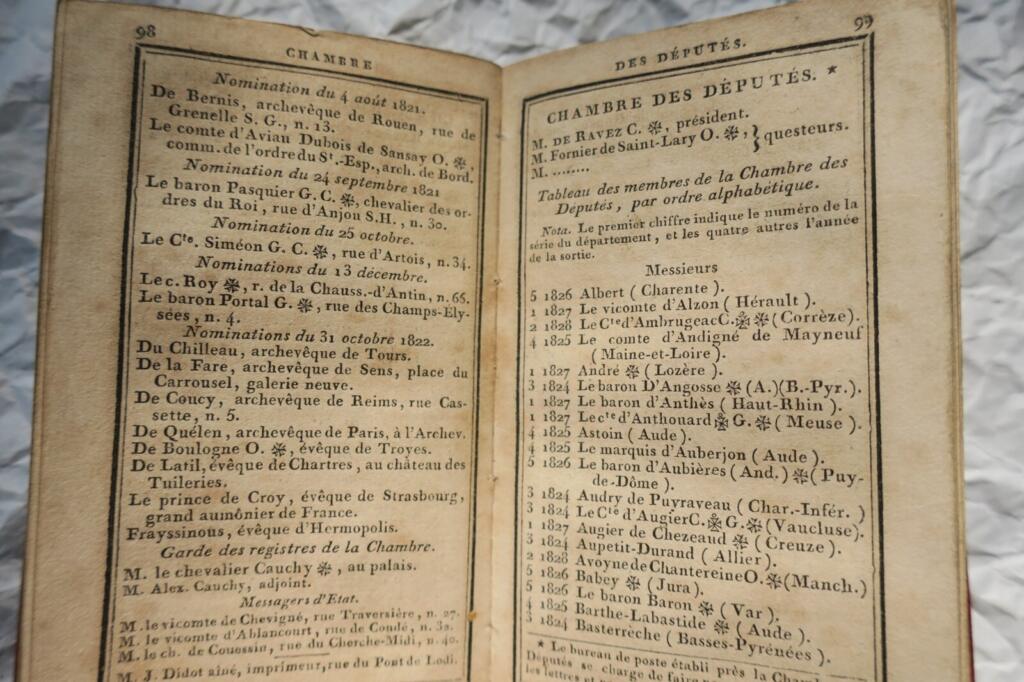 98
CHAMBRE
Nomination du 4 août 1821.
De Bernis, archevêque de Rouen, rue de
Grenelle S. G., n. 13.
Le comte d'Aviau Dubois de Sansay O. ❉,
comm. de l'ordre du St.-Esp., arch. de Bord.
Nomination du 24 septembre 1821
Le baron Pasquier G. C. ❉, chevalier des or-
dres du Roi, rue d'Anjou S.H., n. 30.
Nomination du 25 octobre.
Le Cte. Siméon G. C. ❉, rue d'Artois, n. 34.
Nominations du 13 décembre.
Le c. Roy ❉, r. de la Chauss.-d'Antin, n. 66.
Le baron Portal G. ❉, rue des Champs-Ély-
sées, n. 4.
Nominations du 31 octobre 1822.
Du Chilleau, archevêque de Tours.
De la Fare, archevêque de Sens, place du
Carrousel, galerie neuve.
De Coucy, archevêque de Reims, rue Cas-
sette, n. 5.
De Quélen, archevêque de Paris, à l'Archev.
De Boulogne O. ❉, évêque de Troyes.
De Latil, évêque de Chartres, au château des
Tuileries.
Le prince de Croy, évêque de Strasbourg,
grand aumônier de France.
Frayssinous, évêque d'Hermopolis.
Garde des registres de la Chambre.
M. le chevalier Cauchy ❉, au palais.
M. Alex. Cauchy, adjoint.
Messagers d'Etat.
M. le vicomte de Chevigné, rue Traversière, n. 27.
M. le vicomte d'Ablancourt, rue de Condé, n. 30.
M. le ch. de Couessin, rue du Cherche-Midi, n. 40.
M. J. Didot aîné, imprimeur, rue du Pont de Lodi.
99
DES DÉPUTÉS.
CHAMBRE DES DÉPUTÉS. *
M. DE RAVEZ C. ❉, président.
M. Fornier de Saint-Lary O. ❉, } questeurs.
M. ........
Tableau des membres de la Chambre des
Députés, par ordre alphabétique.
Nota. Le premier chiffre indique le numéro de la
série du département, et les quatre autres l'année
de la sortie.
Messieurs
5 1826 Albert ( Charente ).
1 1827 Le vicomte d'Alzon ( Hérault ).
2 1828 Le Cte d'Ambrugeac C. ❉ ❉ (Corrèze).
4 1825 Le comte d'Andigné de Mayneuf
( Maine-et-Loire ).
1 1827 André ❉ ( Lozère ).
3 1824 Le baron D'Angosse ❉ (A.)(B.-Pyr.).
1 1827 Le baron d'Anthès ( Haut-Rhin ).
1 1827 Le cte d'Anthouard ❉ G. ❉ ( Meuse ).
4 1825 Astoin ( Aude ).
4 1825 Le marquis d'Auberjon ( Aude ).
5 1826 Le baron d'Aubières ( And.) ❉ ( Puy-
de-Dôme ).
3 1824 Audry de Puyraveau ( Char.-Infér. )
3 1824 Le Cte d'Augier C. ❉ G. ❉ (Vaucluse).
1 1827 Augier de Chezeaud ❉ ( Creuze ).
3 1824 Aupetit-Durand ( Allier ).
2 1828 Avoyne de Chantereine O. ❉ (Manch.)
5 1826 Babey ❉ ( Jura ).
5 1826 Le baron Baron ❉ ( Var ).
4 1825 Barthe-Labastide ❉ ( Aude ).
3 1824 Basterrèche ( Basses-Pyrénées ).
* Le bureau de poste établi près la Cham
Députés se charge de faire
les lettres et